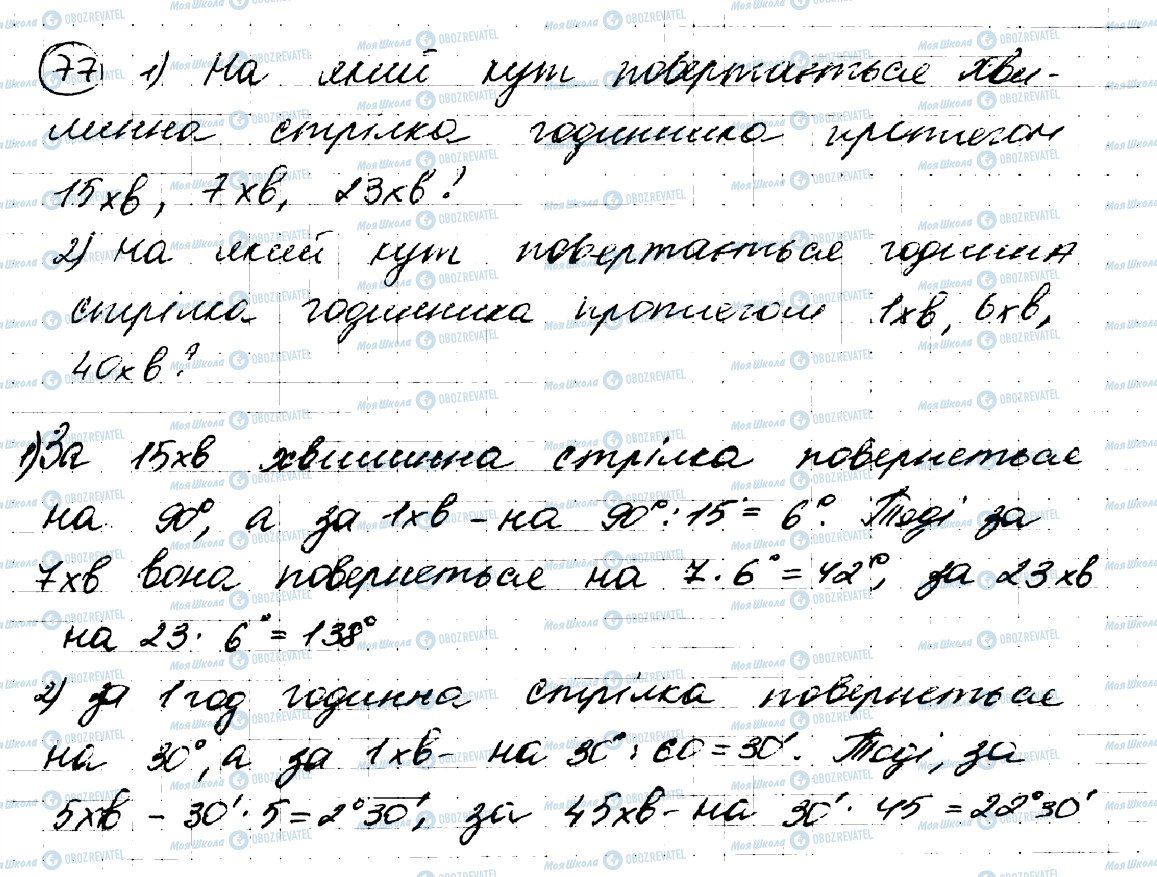 77 1) На який кут повертається хви-
линна стрілка годинника протягом
15хв, 7хв, 23хв?
2) На який кут повертається годинна
стрілка годинника протягом 1хв, 6хв,
40хв?
1) За 15хв хвилинна стрілка повернеться
на 90°, а за 1хв - на 90° : 15 = 6°. Тоді за
7хв вона повернеться на 7 · 6° = 42°, за 23хв
на 23 · 6° = 138°
2) за 1год годинна стрілка повернеться
на 30°, а за 1хв - на 30° : 60 = 30'. Тоді, за
5хв - 30' · 5 = 2°30', за 45хв - на 30' · 45 = 22°30'